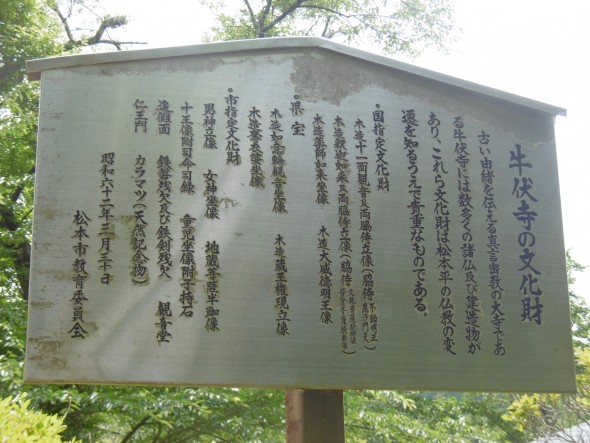 牛伏寺の文化財
古い由緒を伝える真言密教の大寺であ
る牛伏寺には数多くの諸仏及び建造物が
あり、これら文化財は松本平の仏教の変
遷を知るうえで貴重なものである。
・国指定文化財
木造十一面観音及両脇侍立像(脇侍 不動明王 毘沙門天)
木造釈迦如来及両脇侍立像(脇侍)
木造薬師如来坐像 木造大威徳明王像
・県宝
木造如意輪観音坐像 木造蔵王権現立像
木造奪衣婆坐像
・市指定文化財
男神立像 女神坐像 地蔵菩薩半跏像
十王像附司令司録 童児坐像附子持石
追儺面 鉄磬残欠及び鉄剣残欠 観音堂
仁王門 カラマツ(天然記念物)
昭和六十二年三月三十日
松本市教育委員会